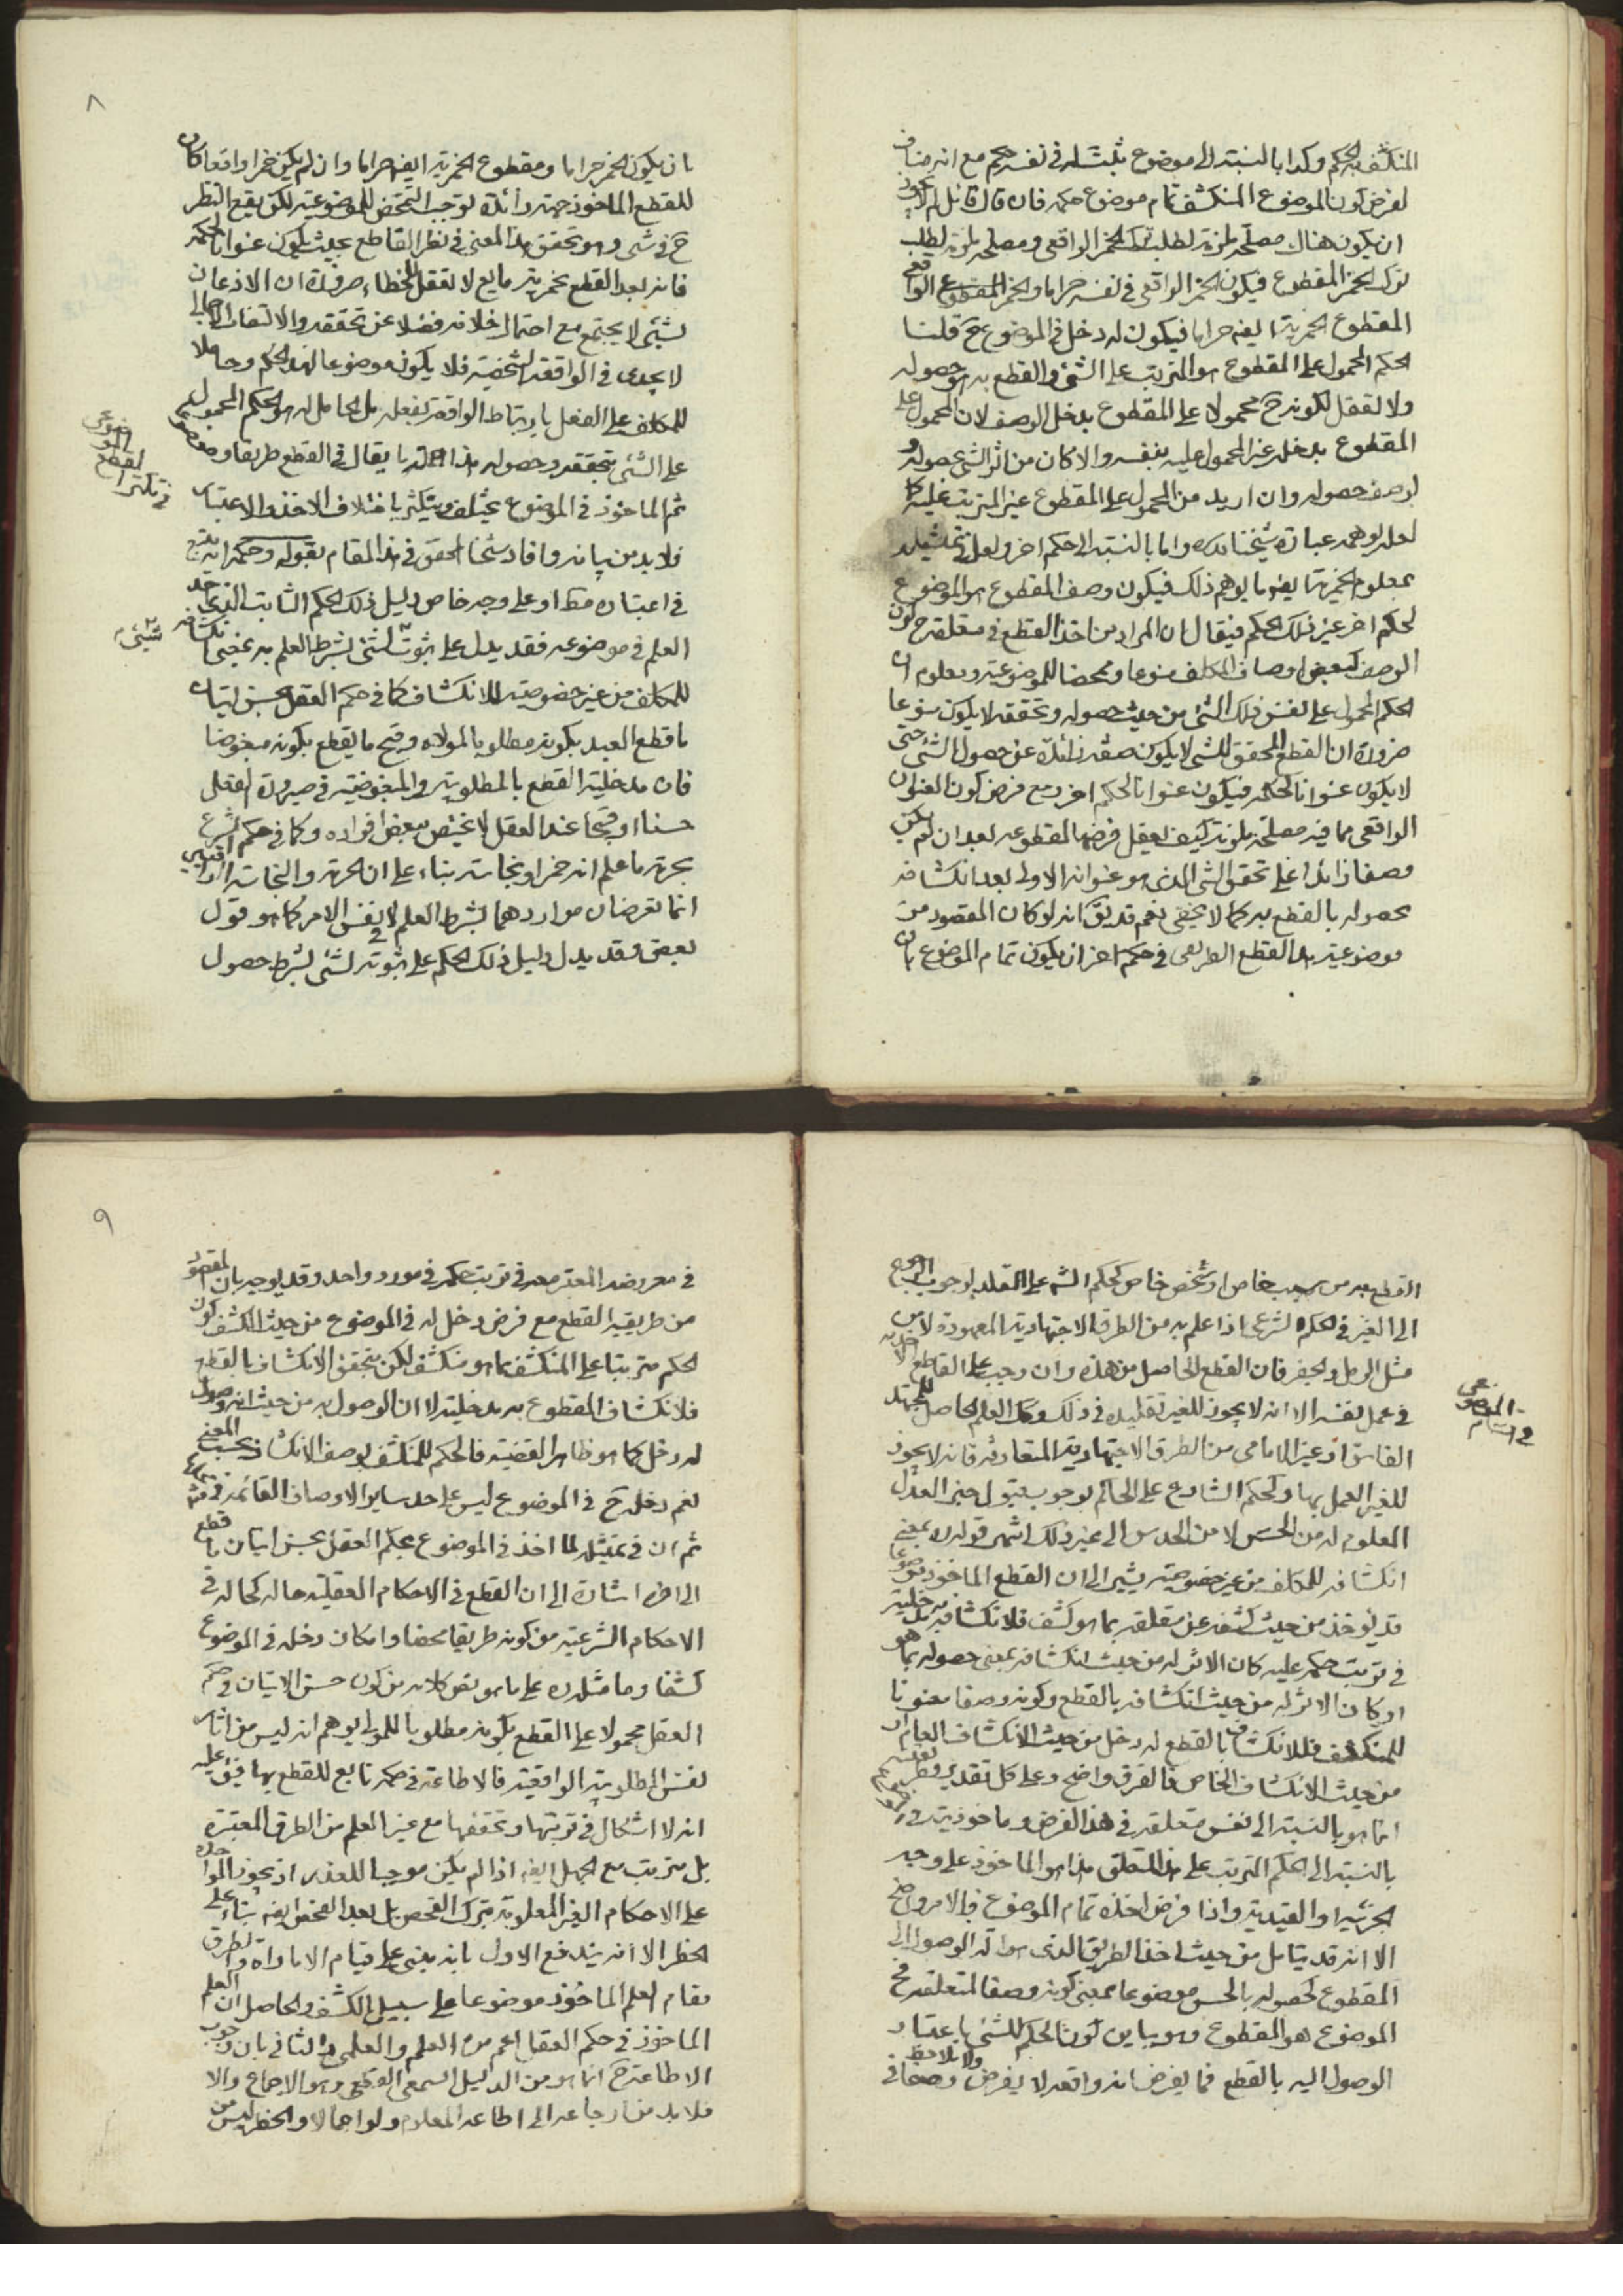 المنكشف بالحكم وكذا بالنسبة الى موضوع يثبت له في نفسه حكم مع انه مناف
لفرض كون الموضوع المنكشف تمام موضوع حكمه فان قال قائل لم لا يجوز
ان يكون هناك مصلحة ملزمة لطلب ترك الخمر الواقعى ومصلحة ملزمة لطلب
ترك الخمر المقطوع فيكون الخمر الواقعى في نفسه حراما والخمر المقطوع الواقعى
المقطوع الخمرية ايضه حراما فيكون له دخل في الموضوع ح قلنا
الحكم المحمول على المقطوع هو المترتب على الشئ والقطع به هو حصوله
ولا تعقل لكونه ح محمولا على المقطوع بدخل الوصف لان المحمول على
المقطوع بدخله غير المحمول عليه بنفسه والا كان من اثر الشئ بحصوله و
لوصف حصوله وان اريد من المحمول على المقطوع غير المترتب عليه كما
لعله يوهمه عبارة شيخنا قده واما بالنسبة الى حكم اخر ولعل في تمثيله
بمعلوم الخمرية ايضه ما يوهم ذلك فيكون وصف المقطوع هو الموضوع
لحكم اخر غير ذلك الحكم فيقال ان المراد من اخذ القطع في متعلقه ح كون
الوصف كبعض اوصاف المكلف منوعا ومحضا للموضوعية ومعلوم ان
الحكم المحمول على نفس ذلك الشئ من حيث حصوله وتحققه لا يكون منوعا
ضرورة ان القطع المحقق للشئ لا يكون صفة زائدة عن حصول الشئ حتى
لا يكون عنوانا لحكمه فيكون عنوانا لحكم اخر ومع فرض كون العنوان
الواقعى مما فيه مصلحة ملزمة كيف يعقل فرضها لمقطوعه بعد ان لم يكن
وصفا زائدا على تحقق الشئ الذى هو عنوانه الاولى بعد انكشافه
بحصوله بالقطع به كما لا يخفى نعم قد يق انه لو كان المقصود من
موضوعية هذا القطع الطريقى في حكم اخر ان يكون تمام الموضوع بان
٨
بان يكون الخمر حراما ومقطوع الخمرية ايضه حراما وان لم يكن خمرا واقعا كان
للقطع الماخوذ جهة زائدة توجب التمحض للموضوعية لكن يقع النظر
ح في شى وهو تحقق هذا المعنى في نظر القاطع بحيث يكون عنوانا لحكمه
فانه بعد القطع بخمرية مايع لا تعقل للخطاء ضرورة ان الاذعان
لشئ لا يجتمع مع احتمال خلافه فضلا عن تحققه والالتفات الاجمالى
لا يجدى في الواقعة الشخصية فلا يكون موضوعا لهذا الحكم وحاملا
للمكلف على الفعل بارتباط الواقعة بفعله بل الحامل له هو الحكم المحمول
على الشئ بتحققه وحصوله هذا ما يقال في القطع طريقا وموضوعا
ثم الماخوذ في الموضوع يختلف ويتكثر باختلاف الاخذ والاعتبار
فلا بد من بيانه وافاد شيخنا المحقق في هذا المقام بقوله وحكمه انه يتبع
في اعتباره مط او على وجه خاص دليل ذلك الحكم الثابت الذى اخذ
العلم في موضوعه فقد يدل على ثبوت لشئ بشرط العلم به بمعنى انكشافه
للمكلف من غير خصوصية للانكشاف كما في حكم العقل بحسن اتيان
ما قطع العبد بكونه مطلوبا لمولاه وقبح ما يقطع بكونه مبغوضا
فان مدخلية القطع بالمطلوبية والمبغوضية في صيرورة الفعل
حسنا او قبيحا عند العقل لا تختص ببعض افراده وكما في حكم الشرع
بحرمة ما علم انه خمر او نجاسته بناء على ان الحرمة والنجاسة الواقعيتين
انما تعرضان مواردهما بشرط العلم لا في نفس الامر كما هو قول
بعض وقد يدل دليل ذلك الحكم على ثبوته لشئ بشرط حصول
القطع به من سبب خاص او شخص خاص كحكم الشه على المقلد بوجوب الرجوع
الى الغير في الحكم الشرعى اذا علم به من الطرق الاجتهادية المعهودة لا من
مثل الرمل والجفر فان القطع الحاصل من هذه وان وجب على القاطع الاخذ به
في عمل نفسه الا انه لا يجوز للغير تقليده في ذلك وكك العلم الحاصل للمجتهد
الفاسق او غير الامامى من الطرق الاجتهادية المتعارفة فانه لا يجوز
للغير العمل بها وكحكم الشارع على الحاكم بوجوب قبول خبر العدل
المعلوم له من الحس لا من الحدس الى غير ذلك انتهى قوله ره بمعنى
انكشافه للمكلف من غير خصوصية يشير الى ان القطع الماخوذ موضوعا
قد يؤخذ من حيث كشفه عن متعلقه بما هو كشف فلانكشافه به مدخلية
في ترتب حكمه عليه كان الاثر له من حيث انكشافه بمعنى حصوله بما هو
او كان الاثر له من حيث انكشافه بالقطع وكونه وصفا معنونا
للمنكشف فللانكشاف بالقطع له دخل من حيث الانكشاف العام او
من حيث الانكشاف الخاص فالفرق واضح وعلى كل تقدير
انما هو بالنسبة الى نفس متعلقه في هذا الفرض وماخوذيته
بالنسبة الى الحكم المترتب على هذا المتعلق هذا هو الماخوذ على وجه
الجزئية او القيدية واذا فرض اخذه تمام الموضوع فالامر واضح
الا انه قد يتامل من حيث اخذ الطريق الذى هو الة الوصول الى
المقطوع لحصوله بالحس موضوعا بمعنى كونه وصفا لمتعلقه فح
الموضوع هو المقطوع وهو يباين كون الحكم للشئ باعتبار
الوصول اليه بالقطع فما يفرض انه واقعه لا يفرض ولا يلاحظ وصفا في
٩
في معروضه المعتبر معه في ترتب حكمه في مورد واحد وقد يوجه بان المقصود
من طريقية القطع مع فرض دخل له في الموضوع من حيث الكشف كون
الحكم مترتبا على المنكشف بما هو منكشف لكن بتحقق الانكشاف بالقطع
فلانكشاف المقطوع به مدخلية لا ان الوصول به من حيث انه وصول
له دخل كما هو ظاهر القضية فالحكم للمنكشف بوصف الانكشاف بحسب المعنى
نعم دخله ح في الموضوع ليس على حد ساير الاوصاف القائمة
ثم ان في تمثيله لما اخذ في الموضوع بحكم العقل بحسن اتيان ما قطع
الى اخره اشارة الى ان القطع في الاحكام العقلية حاله كحاله في
الاحكام الشرعية من كونه طريقا محضا وامكان دخله في الموضوع
كشفا وما مثله ره على ما هو نص كلامه من كون حسن الاتيان في حكم
العقل محمولا على القطع بكونه مطلوبا للمولى يوهم انه ليس من اثار
نفس المطلوبية الواقعية فالاطاعة في حكمه تابع للقطع بها فيق عليه
انه لا اشكال في ترتبها وتحققها مع غير العلم من الطرق المعتبرة
بل مترتب مع الجهل ايضه اذا لم يكن موجبا للعذر اذ تجوز المواخذة
على الاحكام الغير المعلومة بترك الفحص بل بعد الفحص ايضه بناء على
الحظر الا انه يندفع الاول بانه يبنى على قيام الامارات والطرق
مقام العلم الماخوذ موضوعا على سبيل الكشف والحاصل ان العلم
الماخوذ في حكم العقل اعم من العلم والعلمى والثانى بان وجوب
الاطاعة ح انما هو من الدليل السمعى القطعى وهو الاجماع والا
فلا بد من ارجاعه الى اطاعة المعلوم ولو اجمالا والحظر ليس من